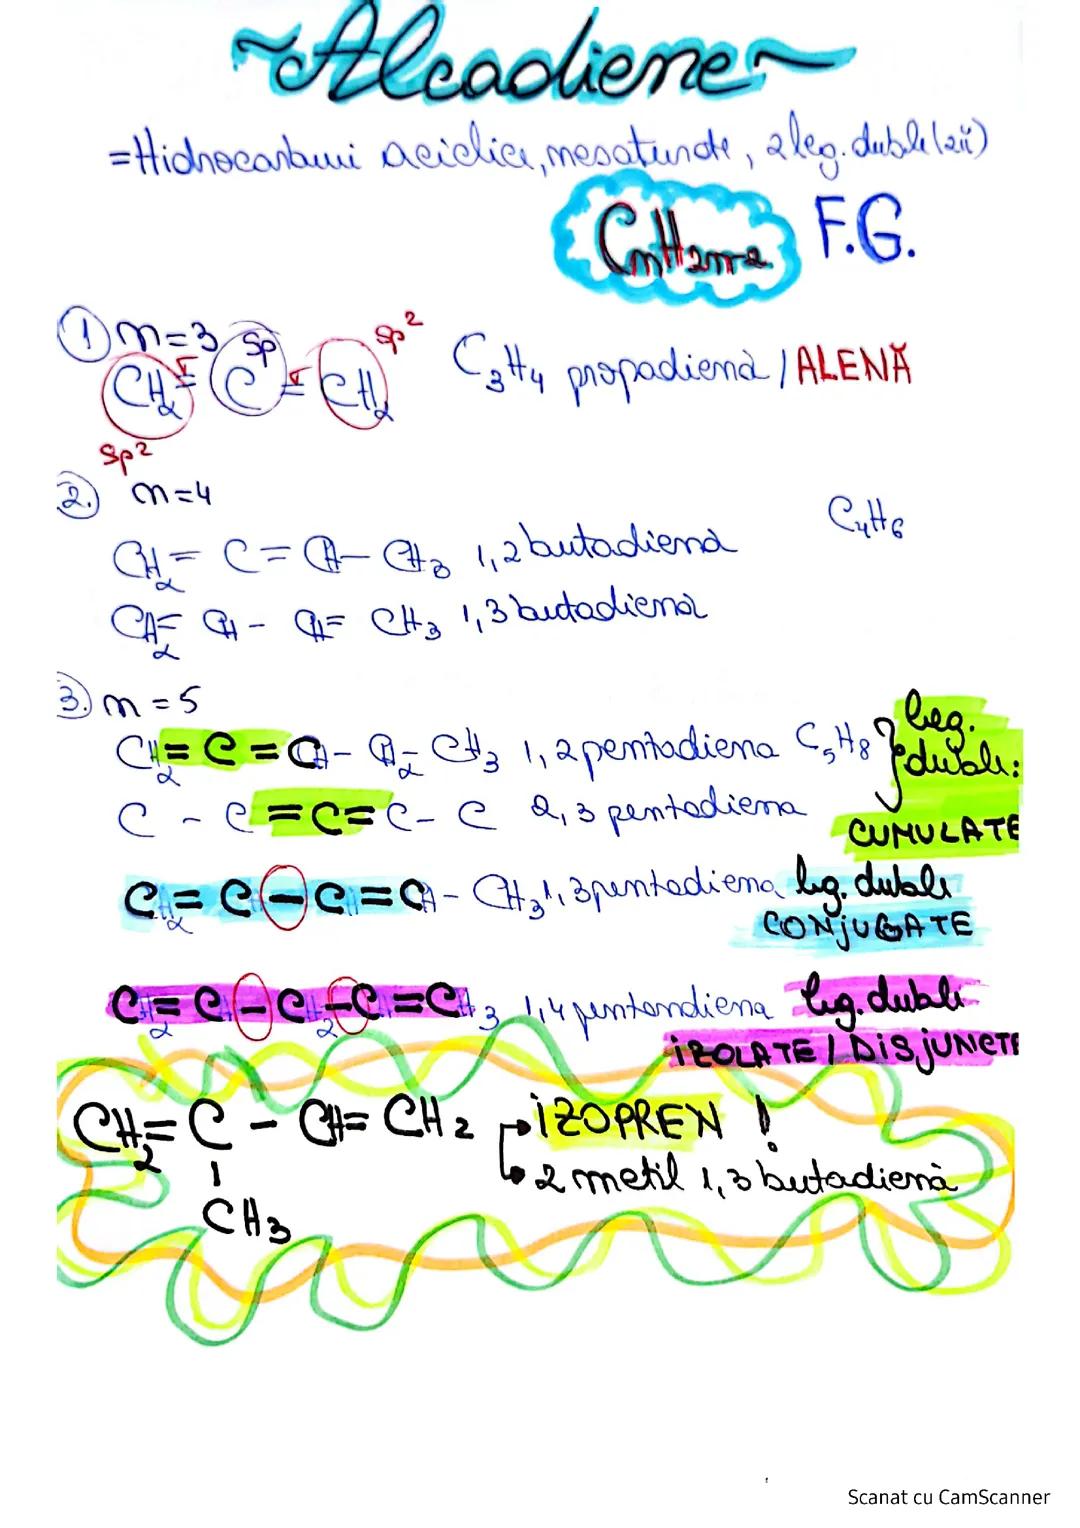 ~Alcadiene~
=Hidrocarburi aciclice, nesaturate, 2 leg. duble (2π)
CnH2n-2 F.G.
1 n=3 sp sp2
CH2 = C = CH2 C3H4 propadienă / ALENĂ
sp2
2. n=4
C4H6
CH2 = C = CH - CH3 1,2 butadienă
CH2 = CH - CH = CH3 1,3 butadienă
3. n=5
CH2 = C = CH - CH2 - CH3 1,2 pentadiena C5H8 } leg. duble:
C - C = C = C - C 2,3 pentadiena
CUMULATE
CH2 = CH - CH = CH - CH3 1,3 pentadiena leg. duble
CONJUGATE
CH2 = CH - CH2 - CH = CH3 1,4 pentandiena leg. duble
IZOLATE / DISJUNCTE
CH2 = C - CH = CH2 → IZOPREN !
→ 2 metil 1,3 butadienă
CH3
Scanat cu CamScanner